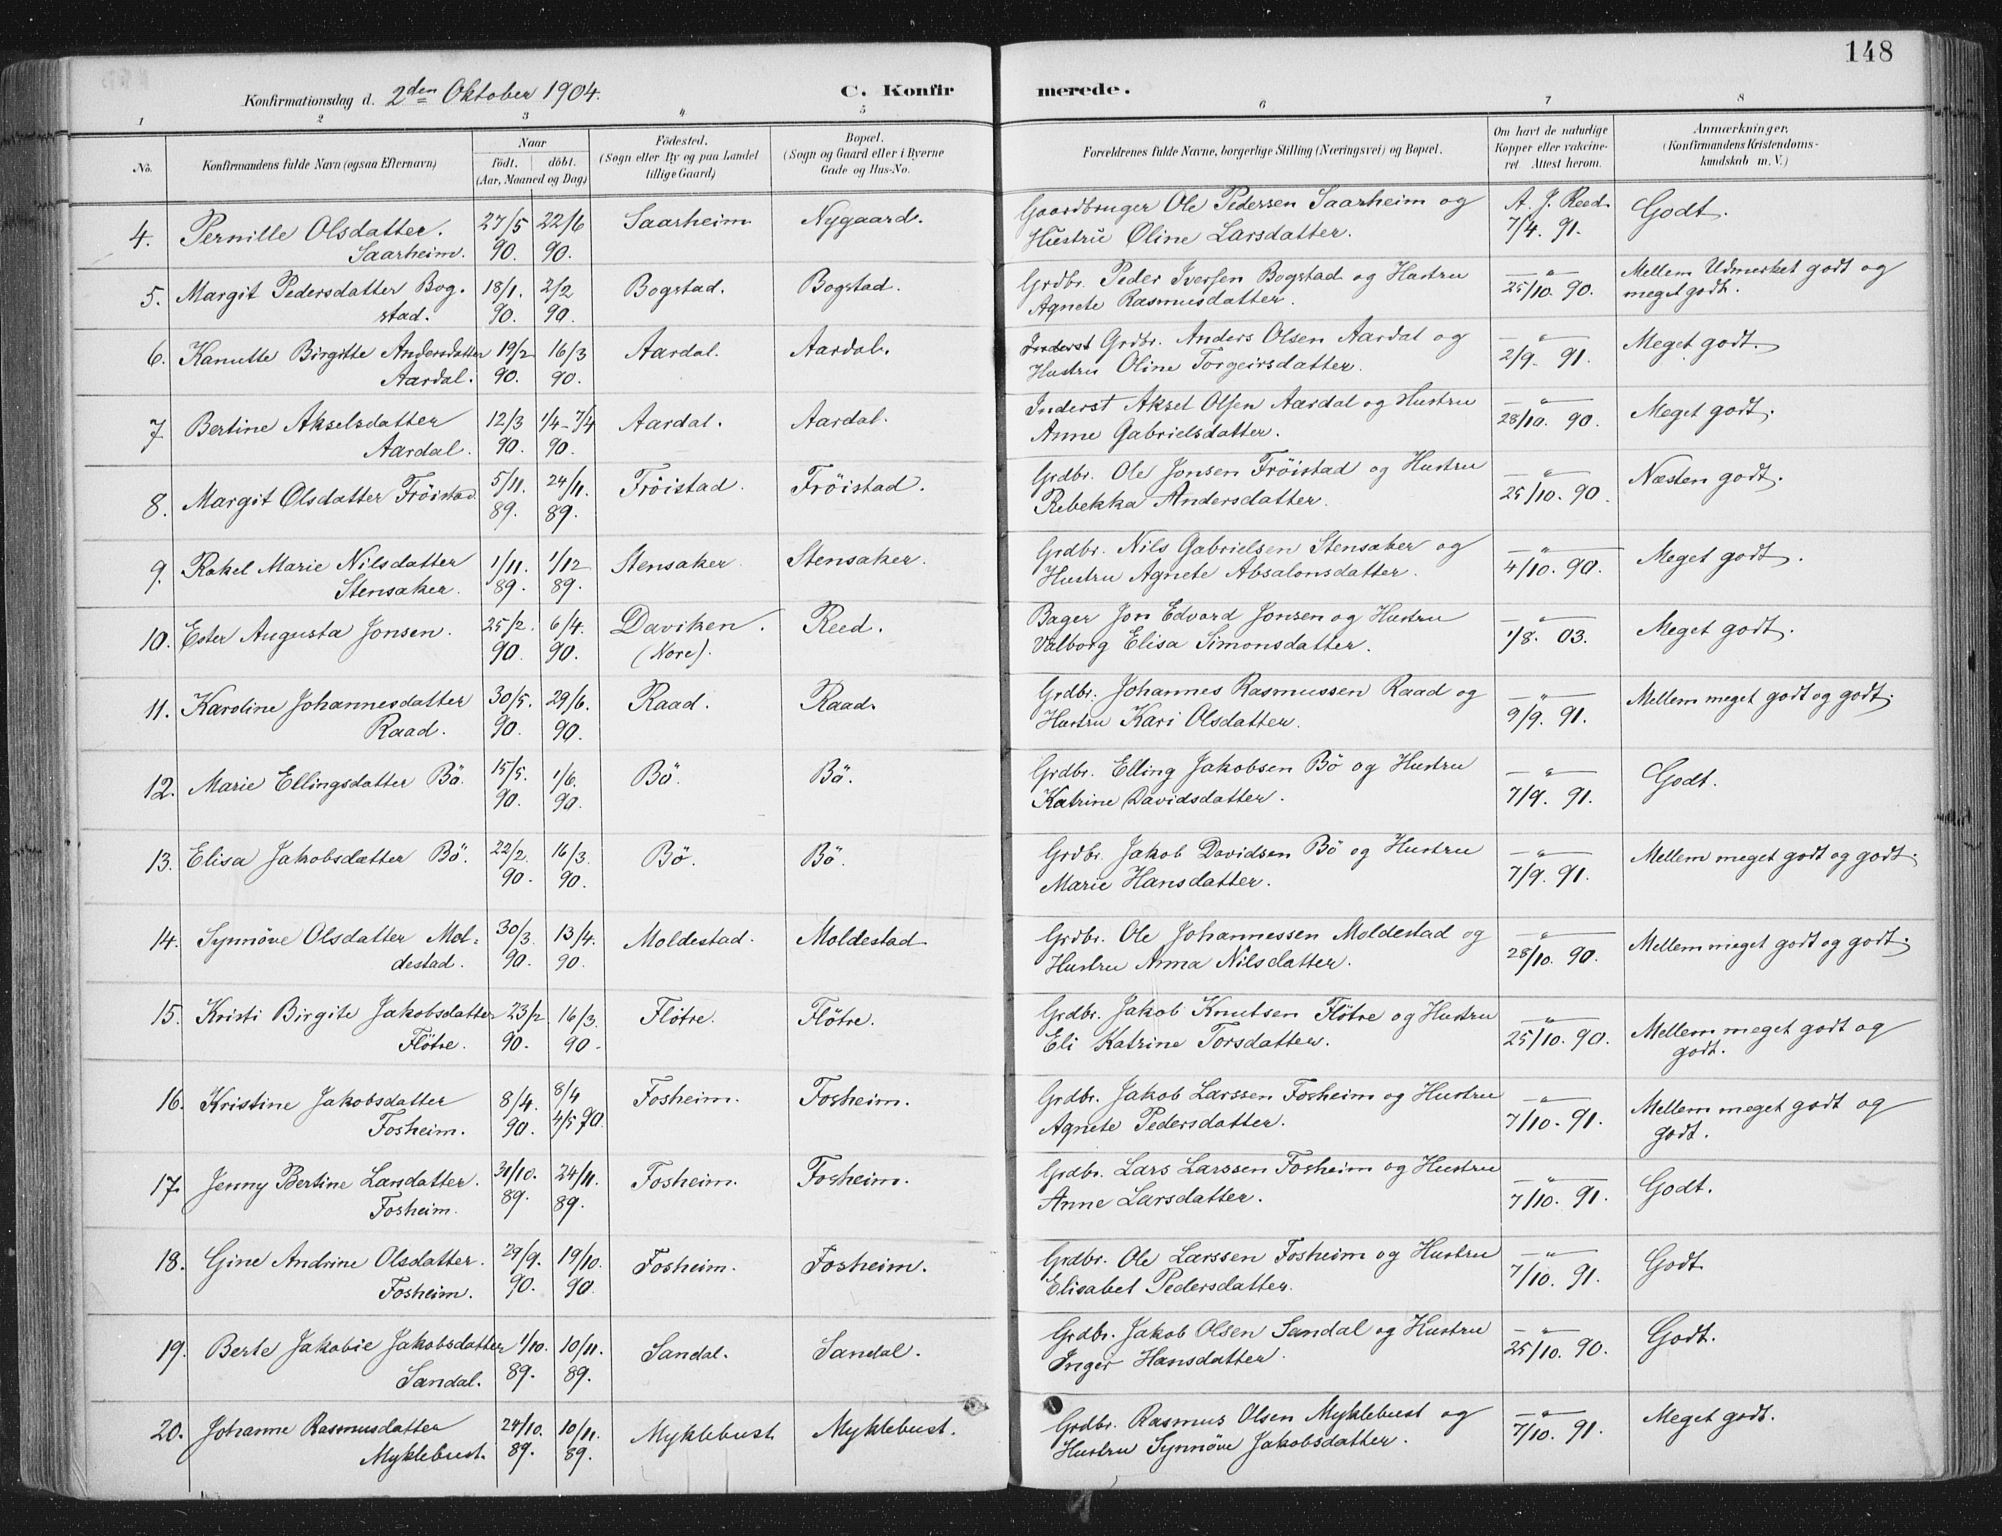 148
Konfirmationsdag d. 2den Oktober 1904. C. Konfirmerede.
1 2 3 4 5 6 7 8
No. Konfirmandens fulde Navn (ogsaa Efternavn) Naar födt. döbt. (Aar, Maaned og Dag) Födested. (Sogn eller By og paa Landet tillige Gaard) Bopæl. (Sogn og Gaard eller i Byerne Gade og Hus-No. Forældrenes fulde Navne, borgerlige Stilling (Næringsvei) og Bopæl. Om havt de naturlige Kopper eller vakcineret. Attest herom. Anmærkninger. (Konfirmandens Kristendomskundskab m. V.)
4. Pernille Olsdatter. 27/5 22/6 Saarheim Nygaard. Gaardbruger Ole Pedersen Saarheim og A. J. Reed. Godt.
Saarheim. 90. 90. Hustru Oline Larsdatter. 7/4. 91.
5. Margit Pedersdatter Bog- 18/1. 2/2 Bogstad. Bogstad. Grdbr. Peder Iversen Bogstad og Hustru — " — Mellem Udmerket godt og
stad. 90. 90. Agnete Rasmusdatter. 25/10. 90. meget godt.
6. Kanutte Birgitte Andersdatter 19/2 16/3 Aardal. Aardal. Inderst Grdbr. Anders Olsen Aardal og — " — Meget godt.
Aardal. 90. 90. Hustru Oline Torgeirsdatter. 2/9. 91.
7. Bertine Akselsdatter 12/3 1/4-7/4 Aardal. Aardal. Inderst Aksel Olsen Aardal og Hustru — " — Meget godt.
Aardal. 90. 90. Anne Gabrielsdatter. 28/10. 90.
8. Margit Olsdatter Fröistad 5/11. 24/11. Fröistad. Fröistad. Grdbr. Ole Jonsen Fröistad og Hustru — " — Næsten godt.
89. 89. Rebekka Andersdatter. 25/10. 90.
9. Rakel Marie Nilsdatter 1/11. 1/12 Stensaker. Stensaker. Grdbr. Nils Gabrielsen Stensaker og — " — Meget godt.
Stensaker. 89. 89. Hustru Agnete Absalonsdatter. 4/10. 90.
10. Ester Augusta Jonsen. 25/2. 6/4. Daviken. Reed. Bager Jon Edvard Jonsen og Hustru — " — Meget godt.
90. 90. (Nore). Valborg Elisa Simonsdatter. 1/8. 03.
11. Karoline Johannesdatter 30/5. 29/6. Raad. Raad. Grdbr. Johannes Rasmussen Raad og — " — Mellem meget godt og godt.
Raad. 90. 90. Hustru Kari Olsdatter. 9/9. 91.
12. Marie Ellingsdatter Bö. 15/5. 1/6. Bö. Bö. Grdbr. Elling Jakobsen Bö og Hustru — " — Godt.
90. 90. Katrine Davidsdatter. 7/9. 91.
13. Elisa Jakobsdatter Bö. 22/2. 16/3. Bö. Bö. Grdbr. Jakob Davidsen Bö og Hustru — " — Mellem meget godt og godt.
90. 90. Marie Hansdatter. 7/9. 91.
14. Synnöve Olsdatter Mol- 30/3. 13/4. Moldestad. Moldestad. Grdbr. Ole Johannessen Moldestad og — " — Mellem meget godt og godt.
destad. 90. 90. Hustru Anna Nilsdatter. 28/10. 90.
15. Kristi Birgite Jakobsdatter 23/2. 16/3. Flötre. Flötre. Grdbr. Jakob Knutsen Flötre og Hustru — " — Mellem meget godt og
Flötre. 90. 90. Eli Katrine Torsdatter. 25/10. 90. godt.
16. Kristine Jakobsdatter 8/4. 8/4 Fosheim. Fosheim. Grdbr. Jakob Larssen Fosheim og Hustru — " — Mellem meget godt og
Fosheim. 90. 4/5 90. Agnete Pedersdatter. 7/10. 91. godt.
17. Jenny Bertine Larsdatter. 31/10. 24/11. Fosheim. Fosheim. Grdbr. Lars Larssen Fosheim og Hustru — " — Godt.
Fosheim. 89. 89. Anne Larsdatter. 7/10. 91.
18. Gine Andrine Olsdatter. 29/9. 19/10. Fosheim. Fosheim. Grdbr. Ole Larssen Fosheim og Hustru — " — Godt.
Fosheim. 90. 90. Elisabet Pedersdatter. 7/10. 91.
19. Berte Jakobie Jakobsdatter 1/10. 10/11. Sandal. Sandal. Grdbr. Jakob Olsen Sandal og Hustru — " — Godt.
Sandal. 89. 89. Inger Hansdatter. 25/10. 90.
20. Johanne Rasmusdatter 24/10. 10/11. Myklebust. Myklebust. Grdbr. Rasmus Olsen Myklebust og — " — Meget godt.
Myklebust. 89. 89. Hustru Synnöve Jakobsdatter. 7/10. 91.